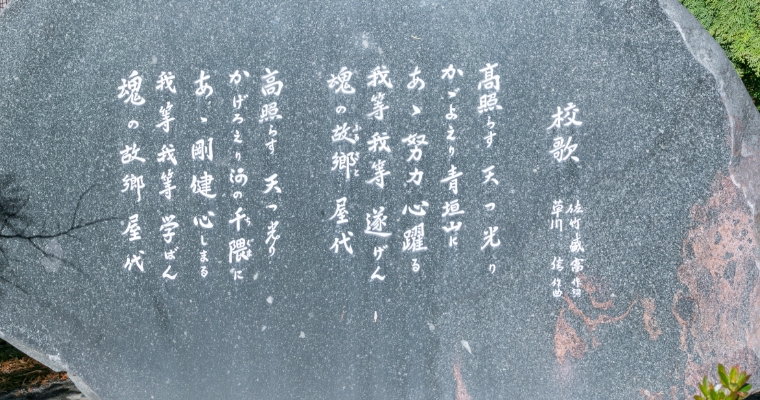 校歌
佐竹盛富 作詞
草川 信 作曲
高照らす 天つ光り
かゞよえり 青垣山に
あゝ努力 心躍る
我等我等 遂げん
塊の故郷 屋代
高照らす 天つ光り
かげろえり 河の千隈に
あゝ剛健 心しまる
我等我等 学ばん
塊の故郷 屋代